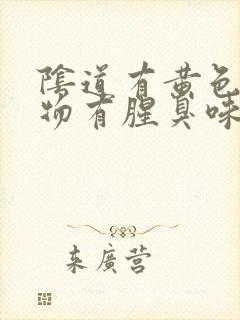 陰道有黃色
物有腥臭味
来廣营